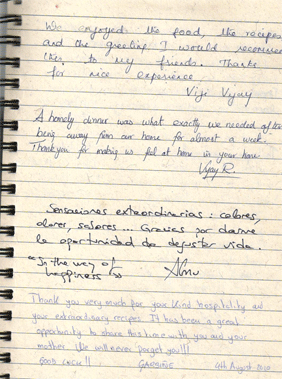 We enjoyed the food, the recipes
and the greeting. I would recommend
this to my friends. Thanks
for nice experience.
Viji Vijay
A homely dinner was what exactly we needed after
being away from our home for almost a week.
Thankyou for making us feel at home in your home
Vijay R.
Sensaciones extraordinarias: colores,
olores, sabores... Gracias por darme
la oportunidad de degustar vida.
"In the way of
happiness"
Thank you very much for your kind hospitality and
your extraordinary recipes. It has been a great
opportunity to share this time with you and your
mother. We will never forget you!!!
GOOD LUCK!!
4th August